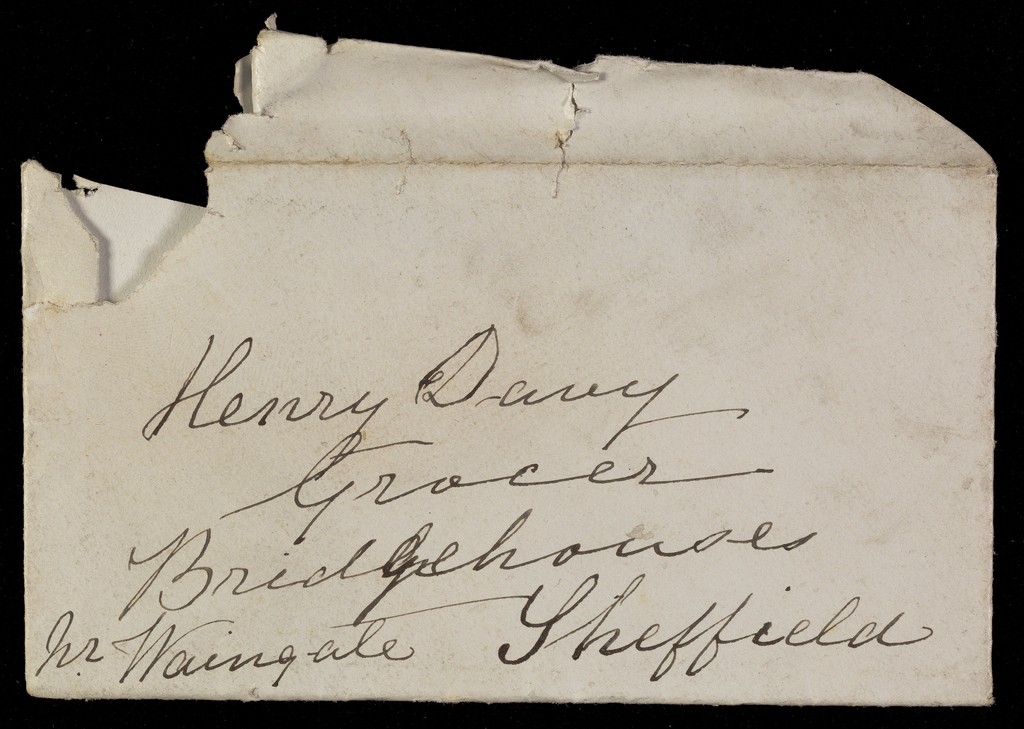 Henry Davy
Grocer
Bridgehouses
Nr. Waingate Sheffield